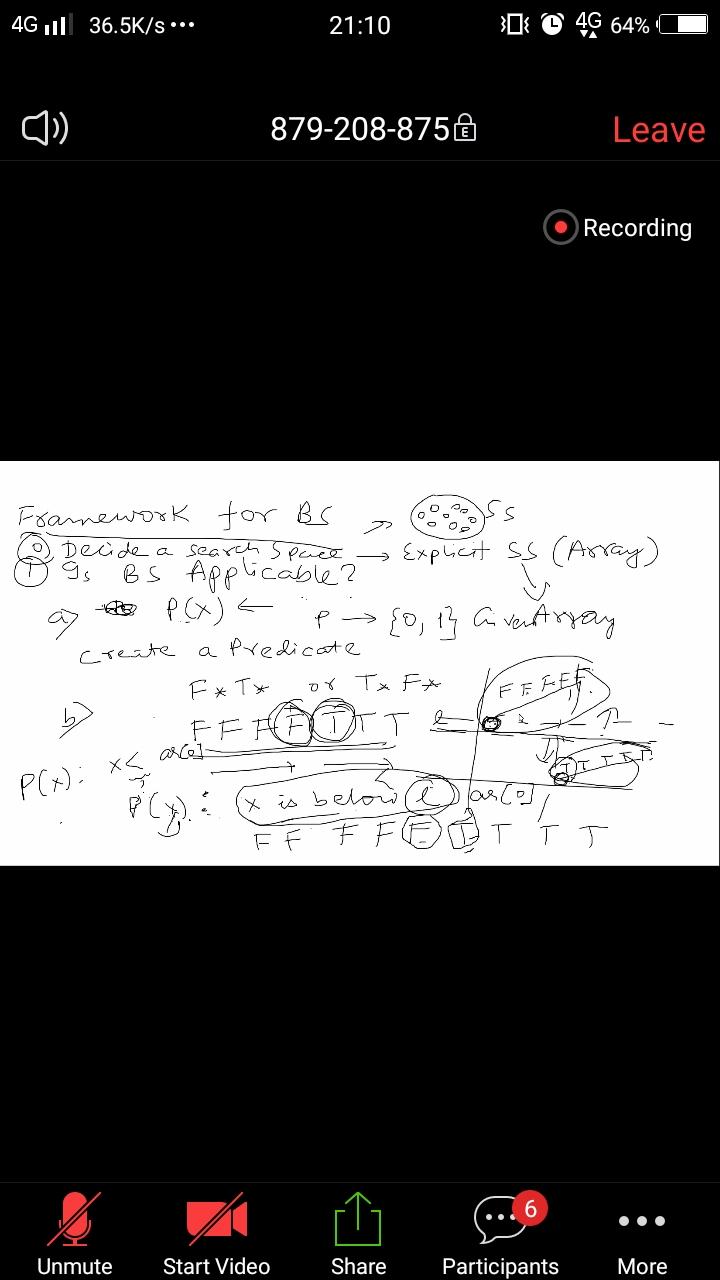 4G 36.5K/s ••• 21:10 4G 64%
879-208-875 E Leave
Recording
Framework for BS → SS
0 Decide a search space → Explicit SS (Array)
1 Is BS Applicable?
a) P(x) ← P → {0, 1} Given Array
Create a Predicate
F* T* or T* F*
F F F F F
b) F F F F T T T l
P(x): x < ar[0]
T T T T T
P(x): x is below l ar[0]
F F F F F T T T T
6
Unmute Start Video Share Participants More